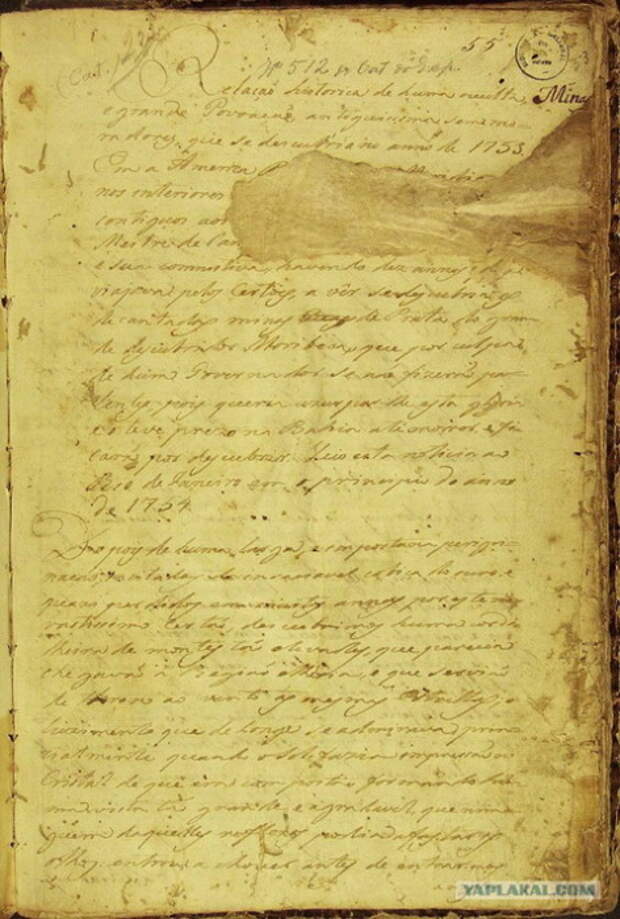 55
(Cat.
Nº 512 do Cat. da Exp.
Minas
Relação historica de huma occulta,
e grande Povoação, antiquissima sem mo-
radores, que se descubriu no anno de 1753.
Em a America
nos interiores
contiguos aos
Mestre de Can
e sua commitiva, havendo dez annos, q
viajava pelos Certões, a vêr se descubria as
decantadas minas de Prata do gran-
de descubridor Moribeca, que por culpa
de hum Governador se não fizerão pa-
tentes, pois queria usurparlhe esta gloria
e o teve prezo na Bahia até morrer, e fi-
carão por descubrir. Veio esta noticia ao
Rio de Janeiro em o principio do anno
de 1754.
Depois de huma larga, e importuna perigri-
nação,
quaze perdidos em muitos annos por este
vastissimo Certão, descubrimos huma cordi-
lheira de montes tão elevados, que parecia
chegavão á Região etheria, e que servião
de throno ao vento as mesmas Estrellas; o
luzimento que de longe se admirava prin-
cialmente quando o Sol fazia impressão ao
Cristal de que era composta formando hu-
ma vista tão grande, e agradavel, que nin-
guem daquelles reflexos podia afastar os
olhos: entrou a chover antes de entrarmos
YAPLAKAL.COM